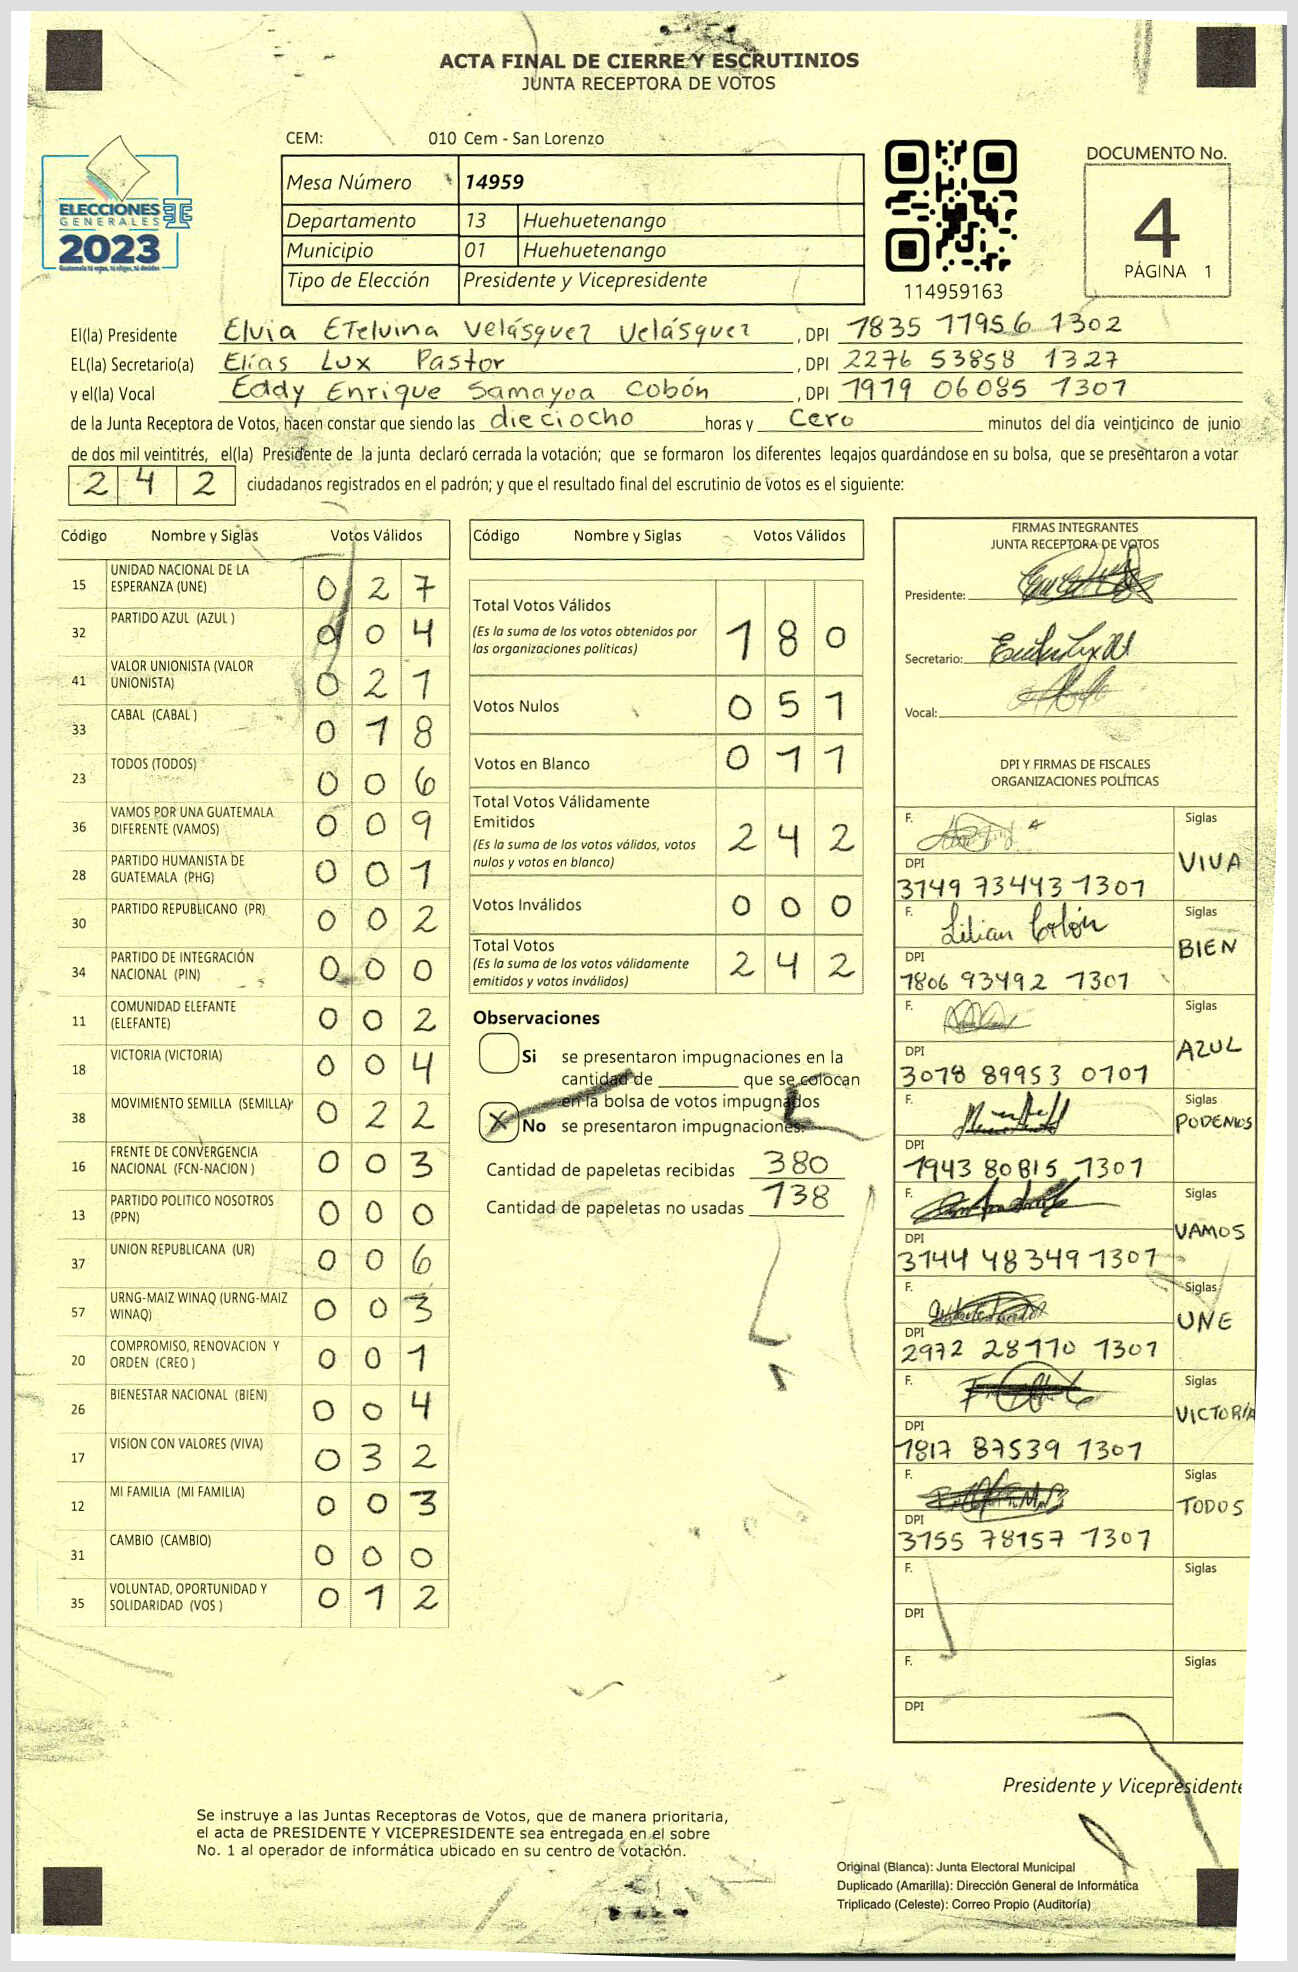 ACTA FINAL DE CIERRE Y ESCRUTINIOS
JUNTA RECEPTORA DE VOTOS
CEM: 010 Cem - San Lorenzo
Mesa Número 14959
Departamento 13 Huehuetenango
Municipio 01 Huehuetenango
Tipo de Elección Presidente y Vicepresidente
ELECCIONES
GENERALES
2023
114959163
DOCUMENTO No.
4
PÁGINA 1
El(la) Presidente Elvia ETelvina Velásquez Velásquez, DPI 1835 11956 1302
EL(la) Secretario(a) Elías Lux Pastor, DPI 2276 53858 1327
y el(la) Vocal Eddy Enrique Samayoa Cobón, DPI 1919 06085 1301
de la Junta Receptora de Votos, hacen constar que siendo las dieciocho horas y Cero minutos del día veinticinco de junio
de dos mil veintitrés, el(la) Presidente de la junta declaró cerrada la votación; que se formaron los diferentes legajos guardándose en su bolsa, que se presentaron a votar
242 ciudadanos registrados en el padrón; y que el resultado final del escrutinio de votos es el siguiente:
Código Nombre y Siglas Votos Válidos
15 UNIDAD NACIONAL DE LA ESPERANZA (UNE) 0 2 7
32 PARTIDO AZUL (AZUL ) 0 0 4
41 VALOR UNIONISTA (VALOR UNIONISTA) 0 2 1
33 CABAL (CABAL ) 0 1 8
23 TODOS (TODOS) 0 0 6
36 VAMOS POR UNA GUATEMALA DIFERENTE (VAMOS) 0 0 9
28 PARTIDO HUMANISTA DE GUATEMALA (PHG) 0 0 1
30 PARTIDO REPUBLICANO (PR) 0 0 2
34 PARTIDO DE INTEGRACIÓN NACIONAL (PIN) 0 0 0
11 COMUNIDAD ELEFANTE (ELEFANTE) 0 0 2
18 VICTORIA (VICTORIA) 0 0 4
38 MOVIMIENTO SEMILLA (SEMILLA) 0 2 2
16 FRENTE DE CONVERGENCIA NACIONAL (FCN-NACION ) 0 0 3
13 PARTIDO POLITICO NOSOTROS (PPN) 0 0 0
37 UNION REPUBLICANA (UR) 0 0 6
57 URNG-MAIZ WINAQ (URNG-MAIZ WINAQ) 0 0 3
20 COMPROMISO, RENOVACION Y ORDEN (CREO ) 0 0 1
26 BIENESTAR NACIONAL (BIEN) 0 0 4
17 VISION CON VALORES (VIVA) 0 3 2
12 MI FAMILIA (MI FAMILIA) 0 0 3
31 CAMBIO (CAMBIO) 0 0 0
35 VOLUNTAD, OPORTUNIDAD Y SOLIDARIDAD (VOS ) 0 1 2
Código Nombre y Siglas Votos Válidos
Total Votos Válidos 1 8 0
(Es la suma de los votos obtenidos por
las organizaciones políticas)
Votos Nulos 0 5 1
Votos en Blanco 0 1 1
Total Votos Válidamente
Emitidos 2 4 2
(Es la suma de los votos válidos, votos
nulos y votos en blanco)
Votos Inválidos 0 0 0
Total Votos 2 4 2
(Es la suma de los votos válidamente
emitidos y votos inválidos)
Observaciones
Si se presentaron impugnaciones en la
cantidad de ________ que se colocan
en la bolsa de votos impugnados
X No se presentaron impugnaciones.
Cantidad de papeletas recibidas 380
Cantidad de papeletas no usadas 138
FIRMAS INTEGRANTES
JUNTA RECEPTORA DE VOTOS
Presidente:
Secretario:
Vocal:
DPI Y FIRMAS DE FISCALES
ORGANIZACIONES POLÍTICAS
F. Siglas VIVA
DPI
3149 73443 1301
F. Lilian Cobón Siglas BIEN
DPI
1806 93492 1301
F. Siglas AZUL
DPI
3078 89953 0101
F. Siglas PODEMOS
DPI
1943 80815 1301
F. Siglas VAMOS
DPI
3144 48349 1301
F. Siglas UNE
DPI
2972 28110 1301
F. Siglas VICTORIA
DPI
1817 87539 1301
F. Siglas TODOS
DPI
3155 78157 1301
F. Siglas
DPI
F. Siglas
DPI
Presidente y Vicepresidente
Se instruye a las Juntas Receptoras de Votos, que de manera prioritaria,
el acta de PRESIDENTE Y VICEPRESIDENTE sea entregada en el sobre
No. 1 al operador de informática ubicado en su centro de votación.
Original (Blanca): Junta Electoral Municipal
Duplicado (Amarilla): Dirección General de Informática
Triplicado (Celeste): Correo Propio (Auditoría)